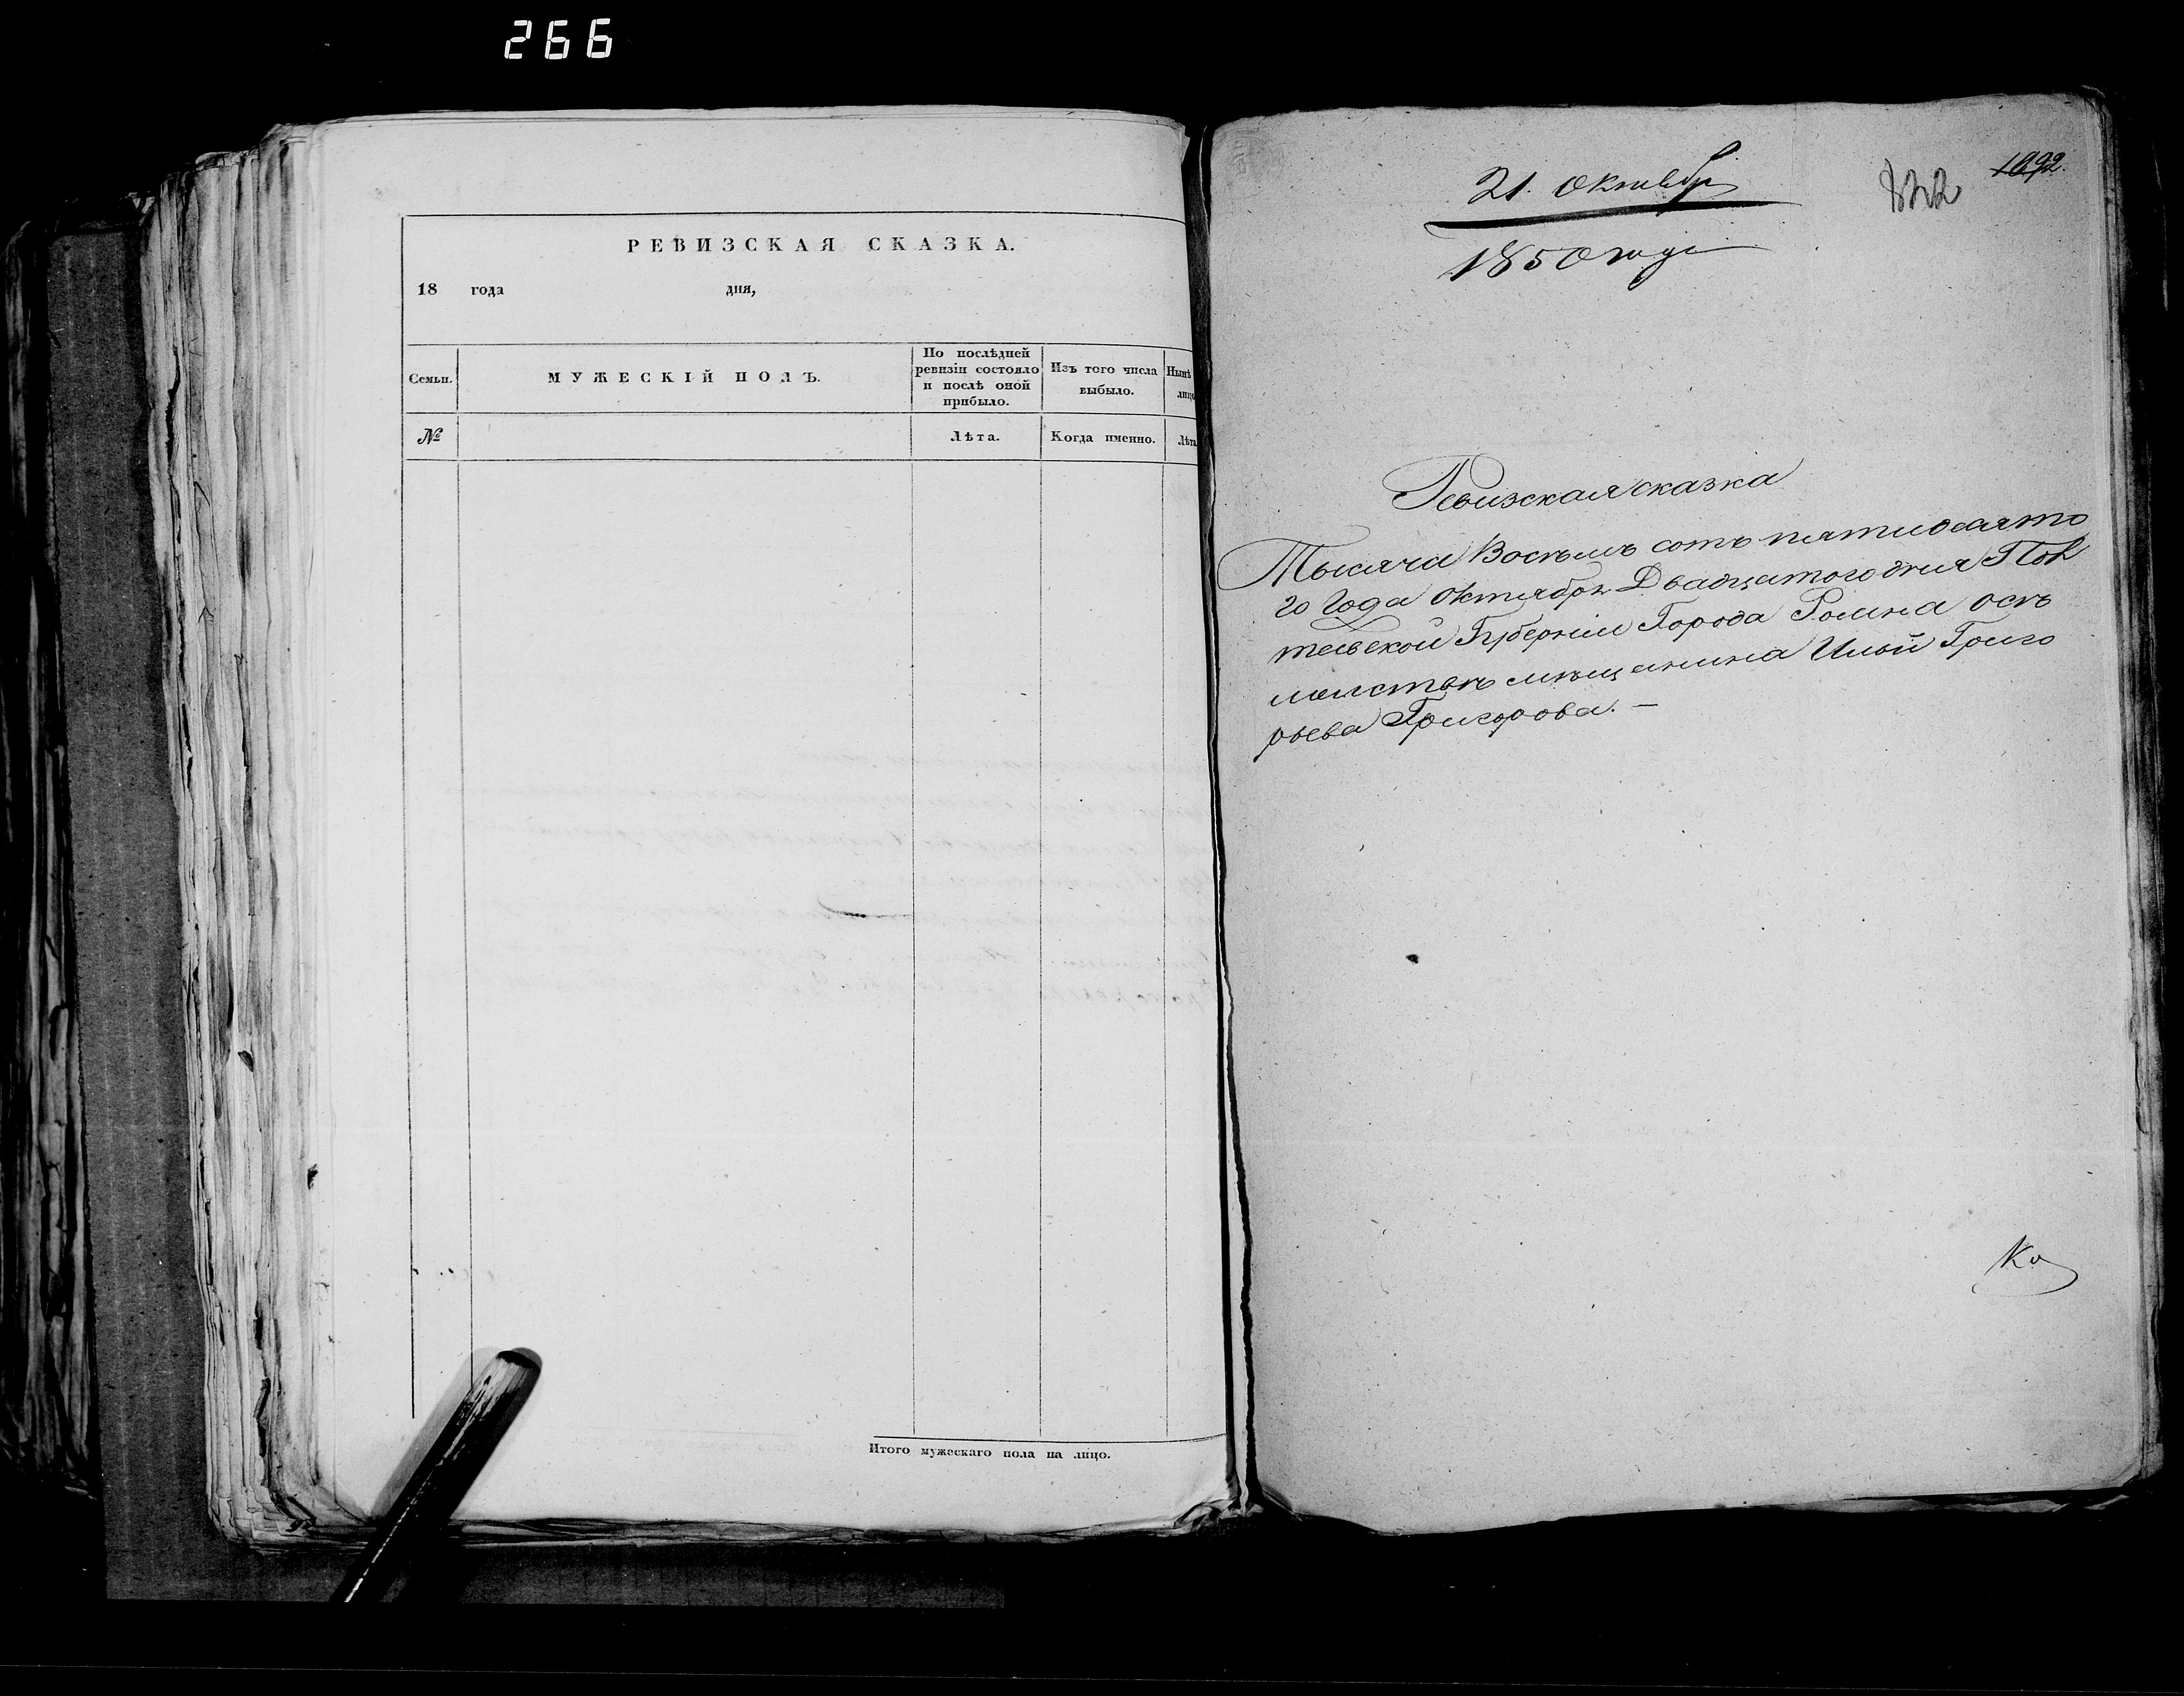 266
РЕВИЗСКАЯ СКАЗКА.
18 года дня,
Семьи.
МУЖЕСКІЙ ПОЛЪ.
По послѣдней
ревизіи состояло
и послѣ оной
прибыло.
Изъ того числа
выбыло.
Нынѣ
лицо
№
Лѣта.
Когда именно.
Лѣта
Итого мужескаго пола на лицо.
21. Октября
1850 года
822
1092.
Ревизская сказка
Тысяча Восѣмъ сотъ пятидесято
го Года Октября Двадцатого дня Пол
тавской Губерніи Города Ромна
мѣщанина Григо
рьева Григорова. —
Ко